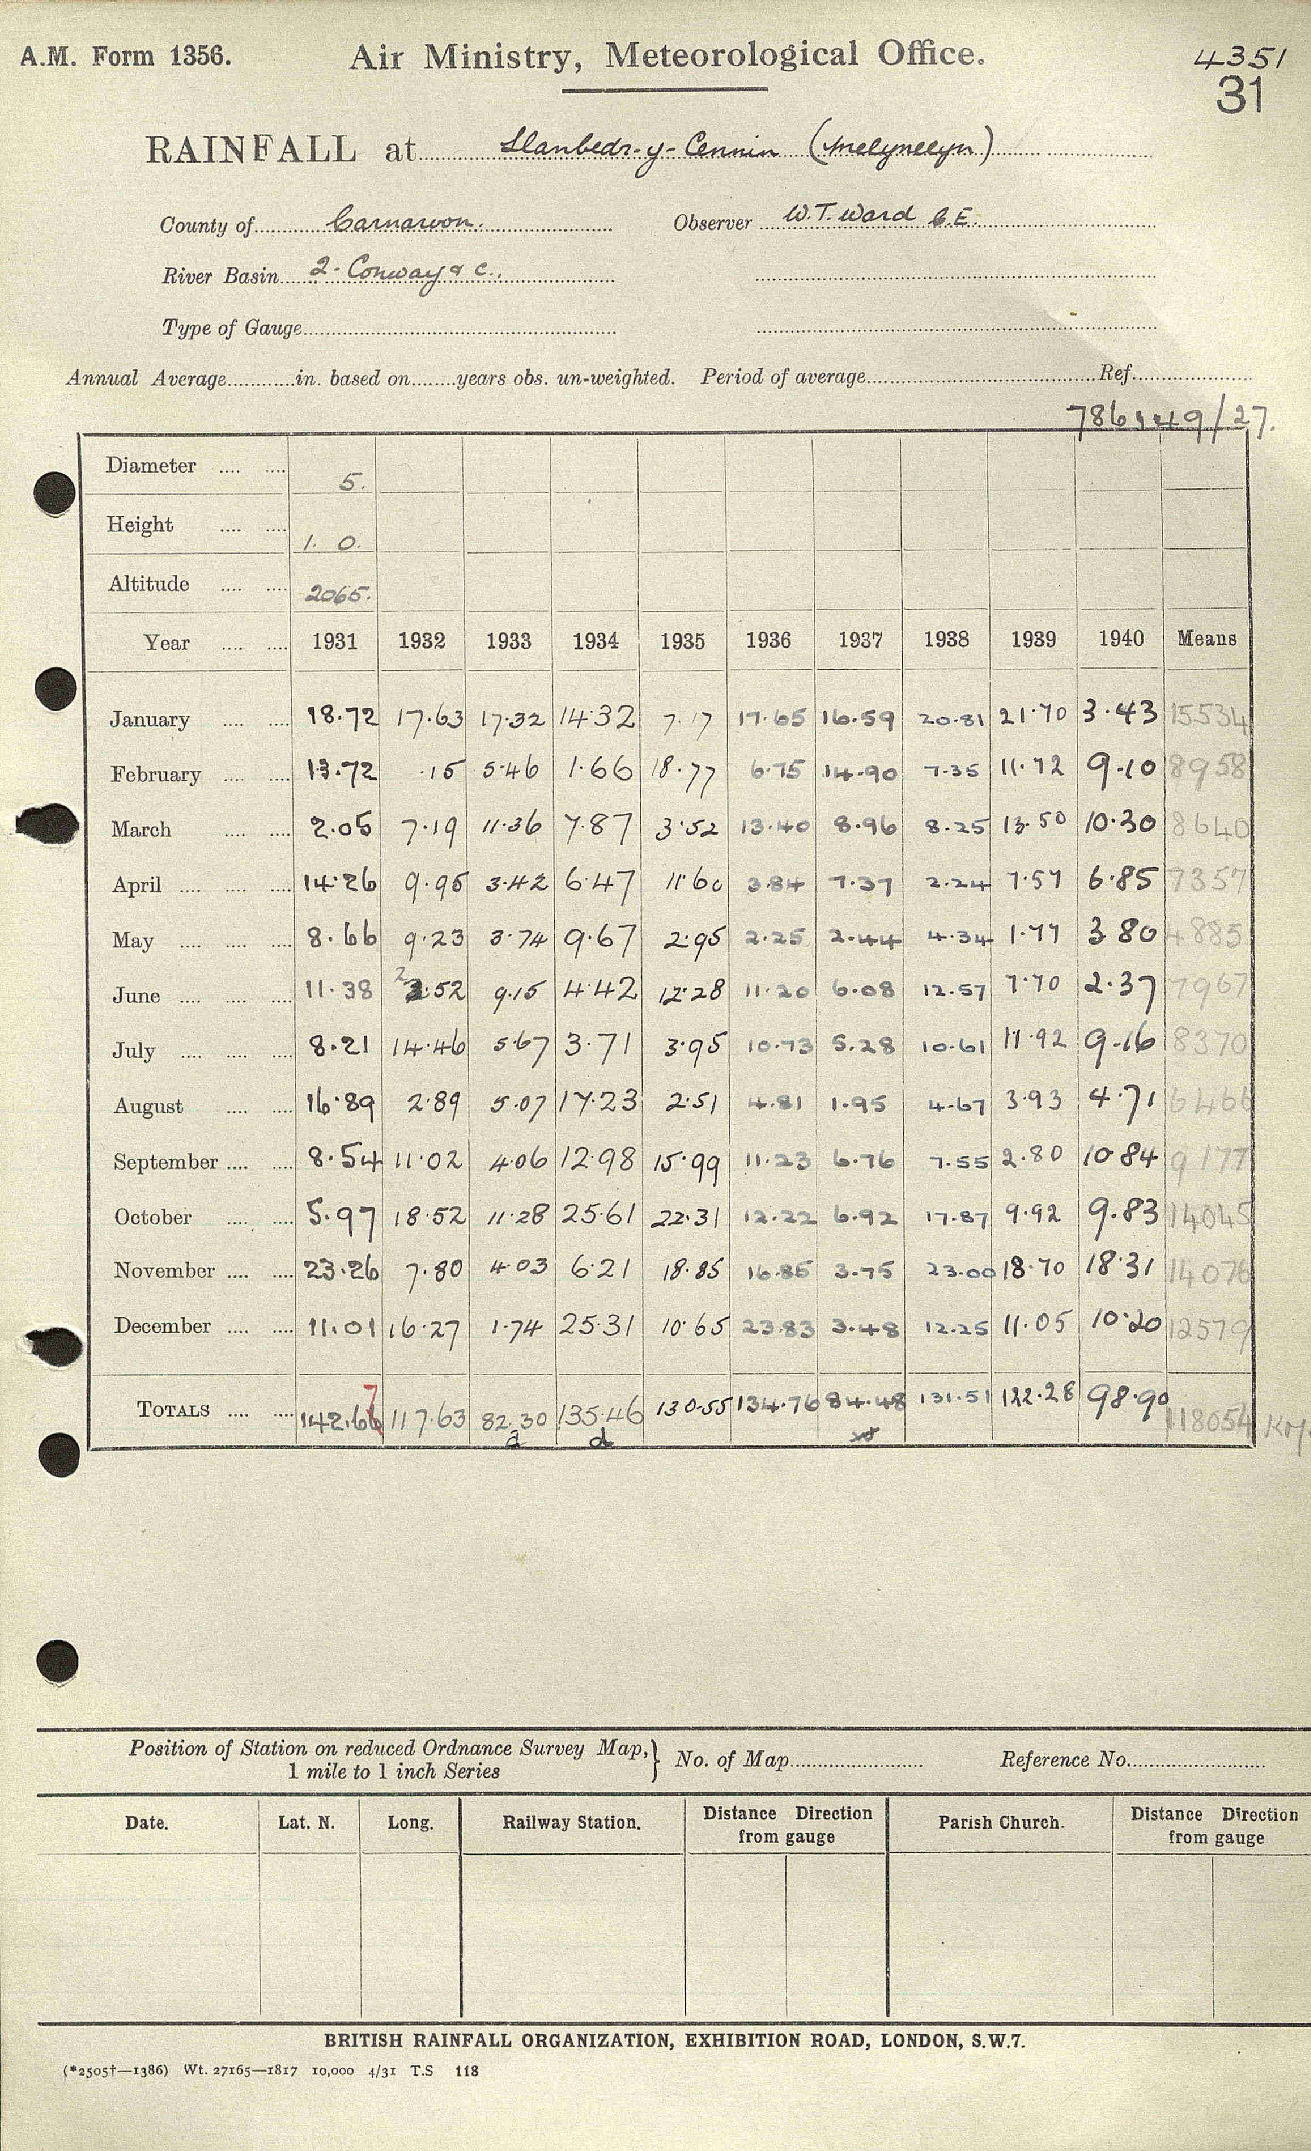 A.M. Form 1356.
Air Ministry, Meteorological Office.
4351
31
RAINFALL at Llanbedr-y-Cennin (Melynllyn)
County of Carnarvon. Observer W.T. Ward C.E.
River Basin 2. Conway & c.
Type of Gauge
Annual Average in. based on years obs. un-weighted. Period of average Ref.
786149/27.
Diameter 5.
Height 1. 0.
Altitude 2065.
Year 1931 1932 1933 1934 1935 1936 1937 1938 1939 1940 Means
January 18.72 17.63 17.32 14.32 7.17 17.65 16.59 20.81 21.70 3.43 15534
February 13.72 .15 5.46 1.66 18.77 6.75 14.90 7.35 11.72 9.10 8958
March 2.05 7.19 11.36 7.87 3.52 13.40 8.96 8.25 13.50 10.30 8640
April 14.26 9.95 3.42 6.47 11.60 3.84 7.37 2.24 7.57 6.85 7357
May 8.66 9.23 3.74 9.67 2.95 2.25 2.44 4.34 1.77 3.80 4885
June 11.38 2.52 9.15 4.42 12.28 11.20 6.08 12.57 7.70 2.37 7967
July 8.21 14.46 5.67 3.71 3.95 10.73 5.28 10.61 11.92 9.16 8370
August 16.89 2.89 5.07 17.23 2.51 4.81 1.95 4.67 3.93 4.71 6466
September 8.54 11.02 4.06 12.98 15.99 11.23 6.76 7.55 2.80 10.84 9177
October 5.97 18.52 11.28 25.61 22.31 12.22 6.92 17.87 9.92 9.83 14045
November 23.26 7.80 4.03 6.21 18.85 16.85 3.75 23.00 18.70 18.31 14076
December 11.01 16.27 1.74 25.31 10.65 23.83 3.48 12.25 11.05 10.20 12579
7
TOTALS 142.66 117.63 82.30 135.46 130.55 134.76 84.48 131.51 122.28 98.90 118054
a d
Position of Station on reduced Ordnance Survey Map, 1 mile to 1 inch Series } No. of Map Reference No.
Date. Lat. N. Long. Railway Station. Distance Direction from gauge Parish Church. Distance Direction from gauge
BRITISH RAINFALL ORGANIZATION, EXHIBITION ROAD, LONDON, S.W.7.
(*2505†—1386) Wt. 27165—1817 10,000 4/31 T.S 118